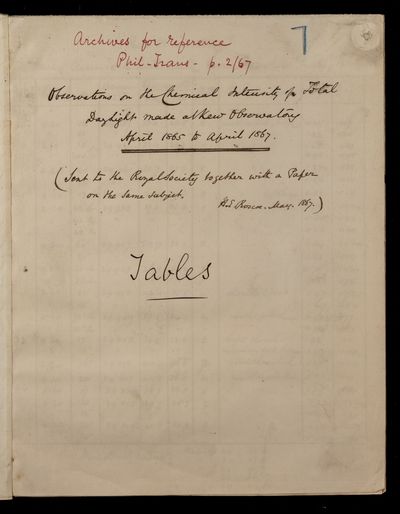 Archives for reference
Phil-Trans - p. 2/67
Observations on the Chemical Intensity of Total
Daylight made at Kew Observatory
April 1865 to April 1867.
(Sent to the Royal Society together with a Paper
on the same subject.
H.E. Roscoe. May. 1867.)
Tables